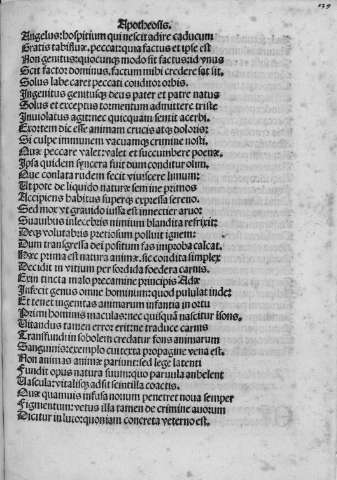 Apotheosis.
Angelus: hospitium qui nescit adire caducum
Gratis tabificæ. peccat: quia factus et ipse est
Non genitus: quocunque modo sit factus: id unus
Scit factor dominus. factum mihi credere sat sit.
Solus labe caret peccati conditor orbis.
Ingenitus genitusque deus pater et patre natus
Solus et exceptus tormentum admittere triste
Inuiolatus agit: nec quicquam sentit acerbi.
Exortem dic esse animam crucis atque doloris:
Si culpe immunem vacuamque crimine nosti.
Quæ peccare valet: valet et succumbere poenæ.
Ipsa quidem syncera fuit dum conditur olim.
Que conlata rudem fecit viuiscere limum:
Utpote de liquido naturæ semine primos
Accipiens habitus superque expressa sereno.
Sed mox vt grauido iussa est innectier aruo:
Suauibus inlecebris nimium blandita refrixit:
Deque volutabris pretiosum polluit ignem:
Dum transgressa dei positum fas improba calcat.
Hæc prima est natura animæ. sic condita simplex
Decidit in vitium per sordida foedera carnis.
Exin tincta malo precamine principis Adæ
Infecit genus omne hominum: quod pululat inde:
Et tenet ingenitas animarum infantia in ortu
Primi hominis maculas: nec quisquam nascitur isons.
Vitandus tamen error erit: ne traduce carnis
Transfundi in sobolem credatur fons animarum
Sanguinis: exemplo cui texta propagine vena est.
Non animas animæ pariunt: sed lege latenti
Fundit opus natura suum: quo paruula anhelent
Vascula: vitalisque adsit scintilla coactis.
Quæ quamuis infusa nouum penetret noua semper
Figmentum: vetus illa tamen de crimine auorum
Dicitur in luco: quoniam concreta veterno est.